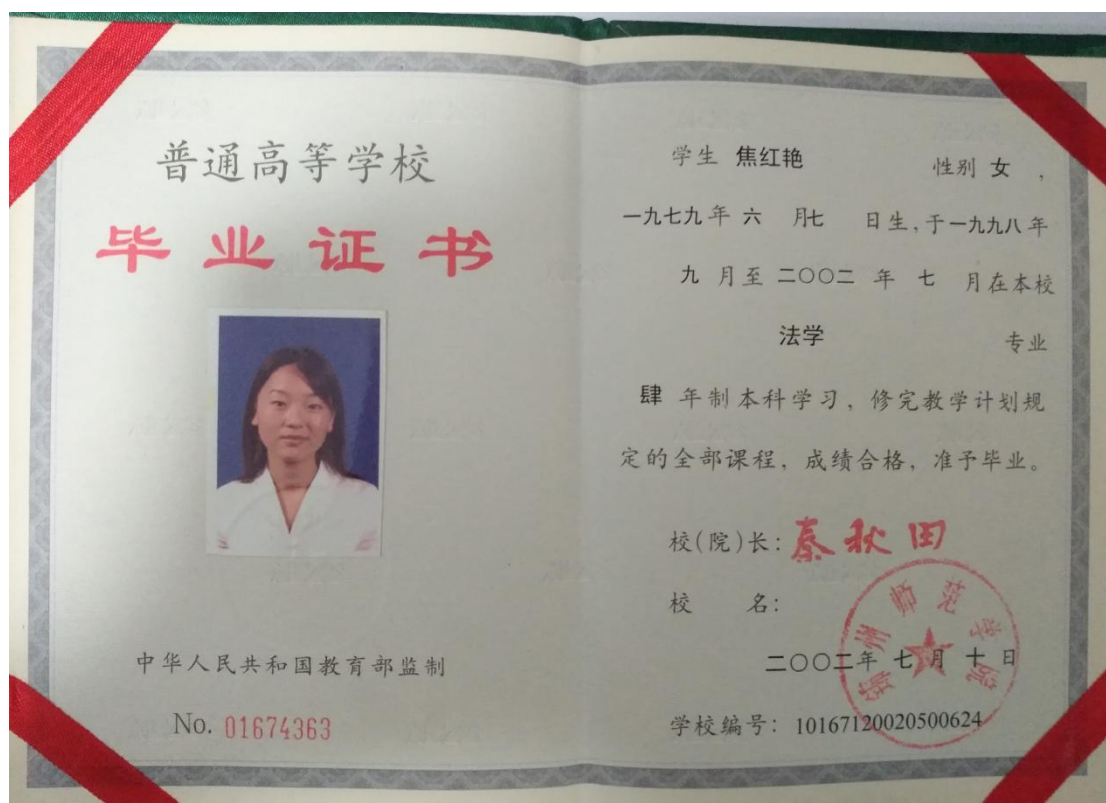 普通高等学校
毕业证书
中华人民共和国教育部监制
No. 01674363
学生 焦红艳 性别 女 ,
一九七九年 六 月七 日生,于一九九八年
九 月至 二〇〇二 年 七 月在本校
法学 专业
肆 年制本科学习, 修完教学计划规
定的全部课程, 成绩合格, 准予毕业。
校(院)长: 秦秋田
校 名:
锦州师范学院
二〇〇二年 七 月 十 日
学校编号: 10167120020500624